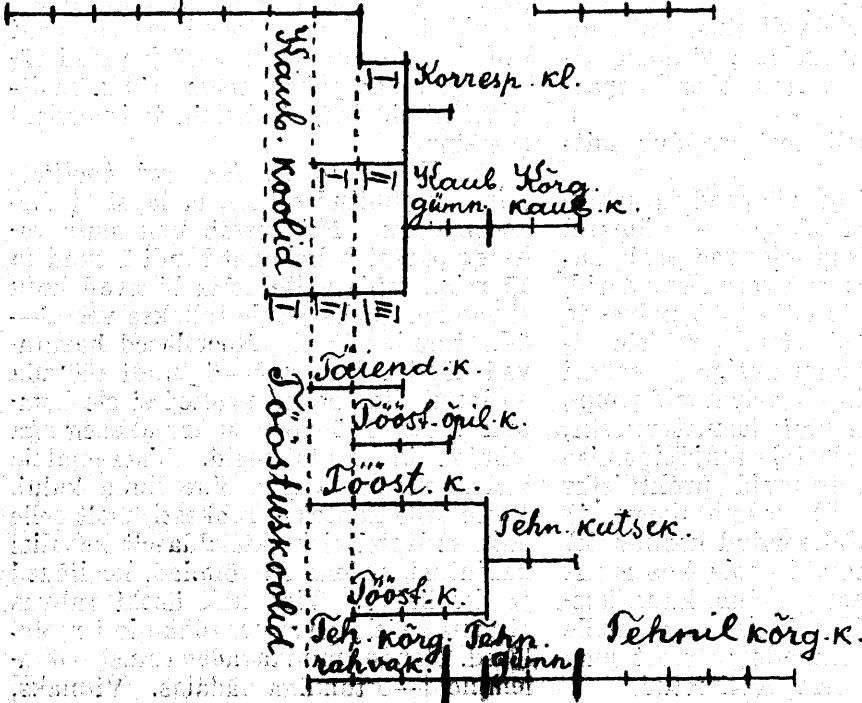 Kaub. Koolid
I
Korresp. kl.
I II
Kaub. Kõrg.
gümn. kaub. k.
I II III
Tööstuskoolid
Täiend. k.
Tööst. õpil. k.
Tööst. k.
Tehn. kutsek.
Tööst. k.
Teh. kõrg. Tehn. Tehnil kõrg. k.
rahvak. gümn